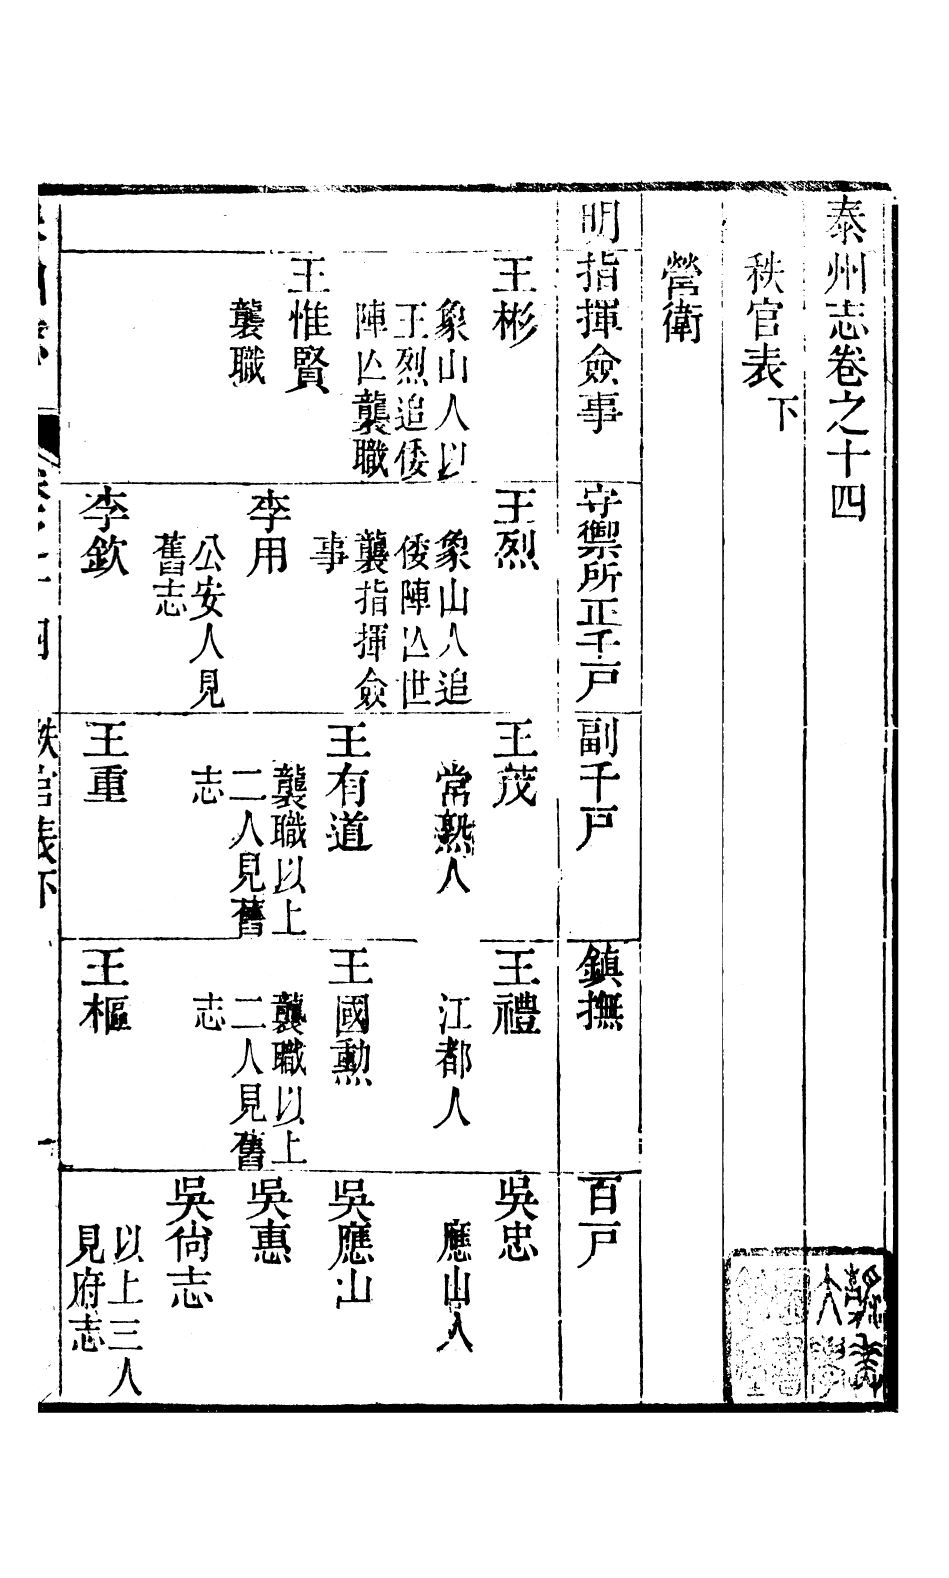 泰州志卷之十四
秩官表下
營衛
明
指揮僉事
守禦所正千戶
副千戶
鎮撫
百戶
王彬
象山人以
王烈追倭
陣亾襲職
王惟賢
襲職
王烈
象山人追
倭陣亾世
襲指揮僉
事
李用
公安人見
舊志
李欽
王茂
常熟人
王有道
襲職以上
二人見舊
志
王重
王禮
江都人
王國勲
襲職以上
二人見舊
志
王樞
吳忠
應山人
吳應山
吳惠
吳尙志
以上三人
見府志
卷之十四
秩官表下
一